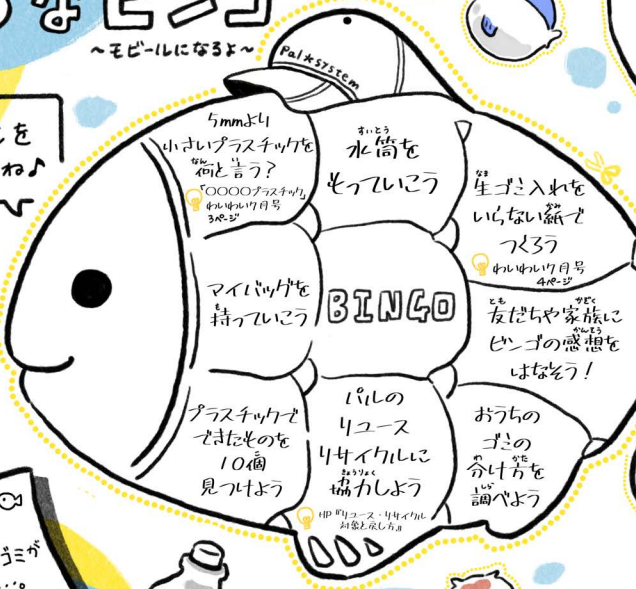 なビンゴ
～モビールになるよ～
Pal*system
を
ね♪
5mmより
小さいプラスチックを
何と言う？
なん い
「〇〇〇〇プラスチック」
わいわい7月号
3ページ
水筒を
すいとう
もっていこう
生ゴミ入れを
なま
いらない紙で
かみ
つくろう
わいわい7月号
4ページ
マイバッグを
持っていこう
も
BINGO
友だちや家族に
とも かぞく
ビンゴの感想を
かんそう
はなそう！
プラスチックで
できたものを
10個
こ
見つけよう
パルの
リユース
リサイクルに
協力しよう
きょうりょく
HP『リユース・リサイクル
対象と戻し方』
おうちの
ゴミの
分け方を
わ かた
調べよう
しら
ゴミが